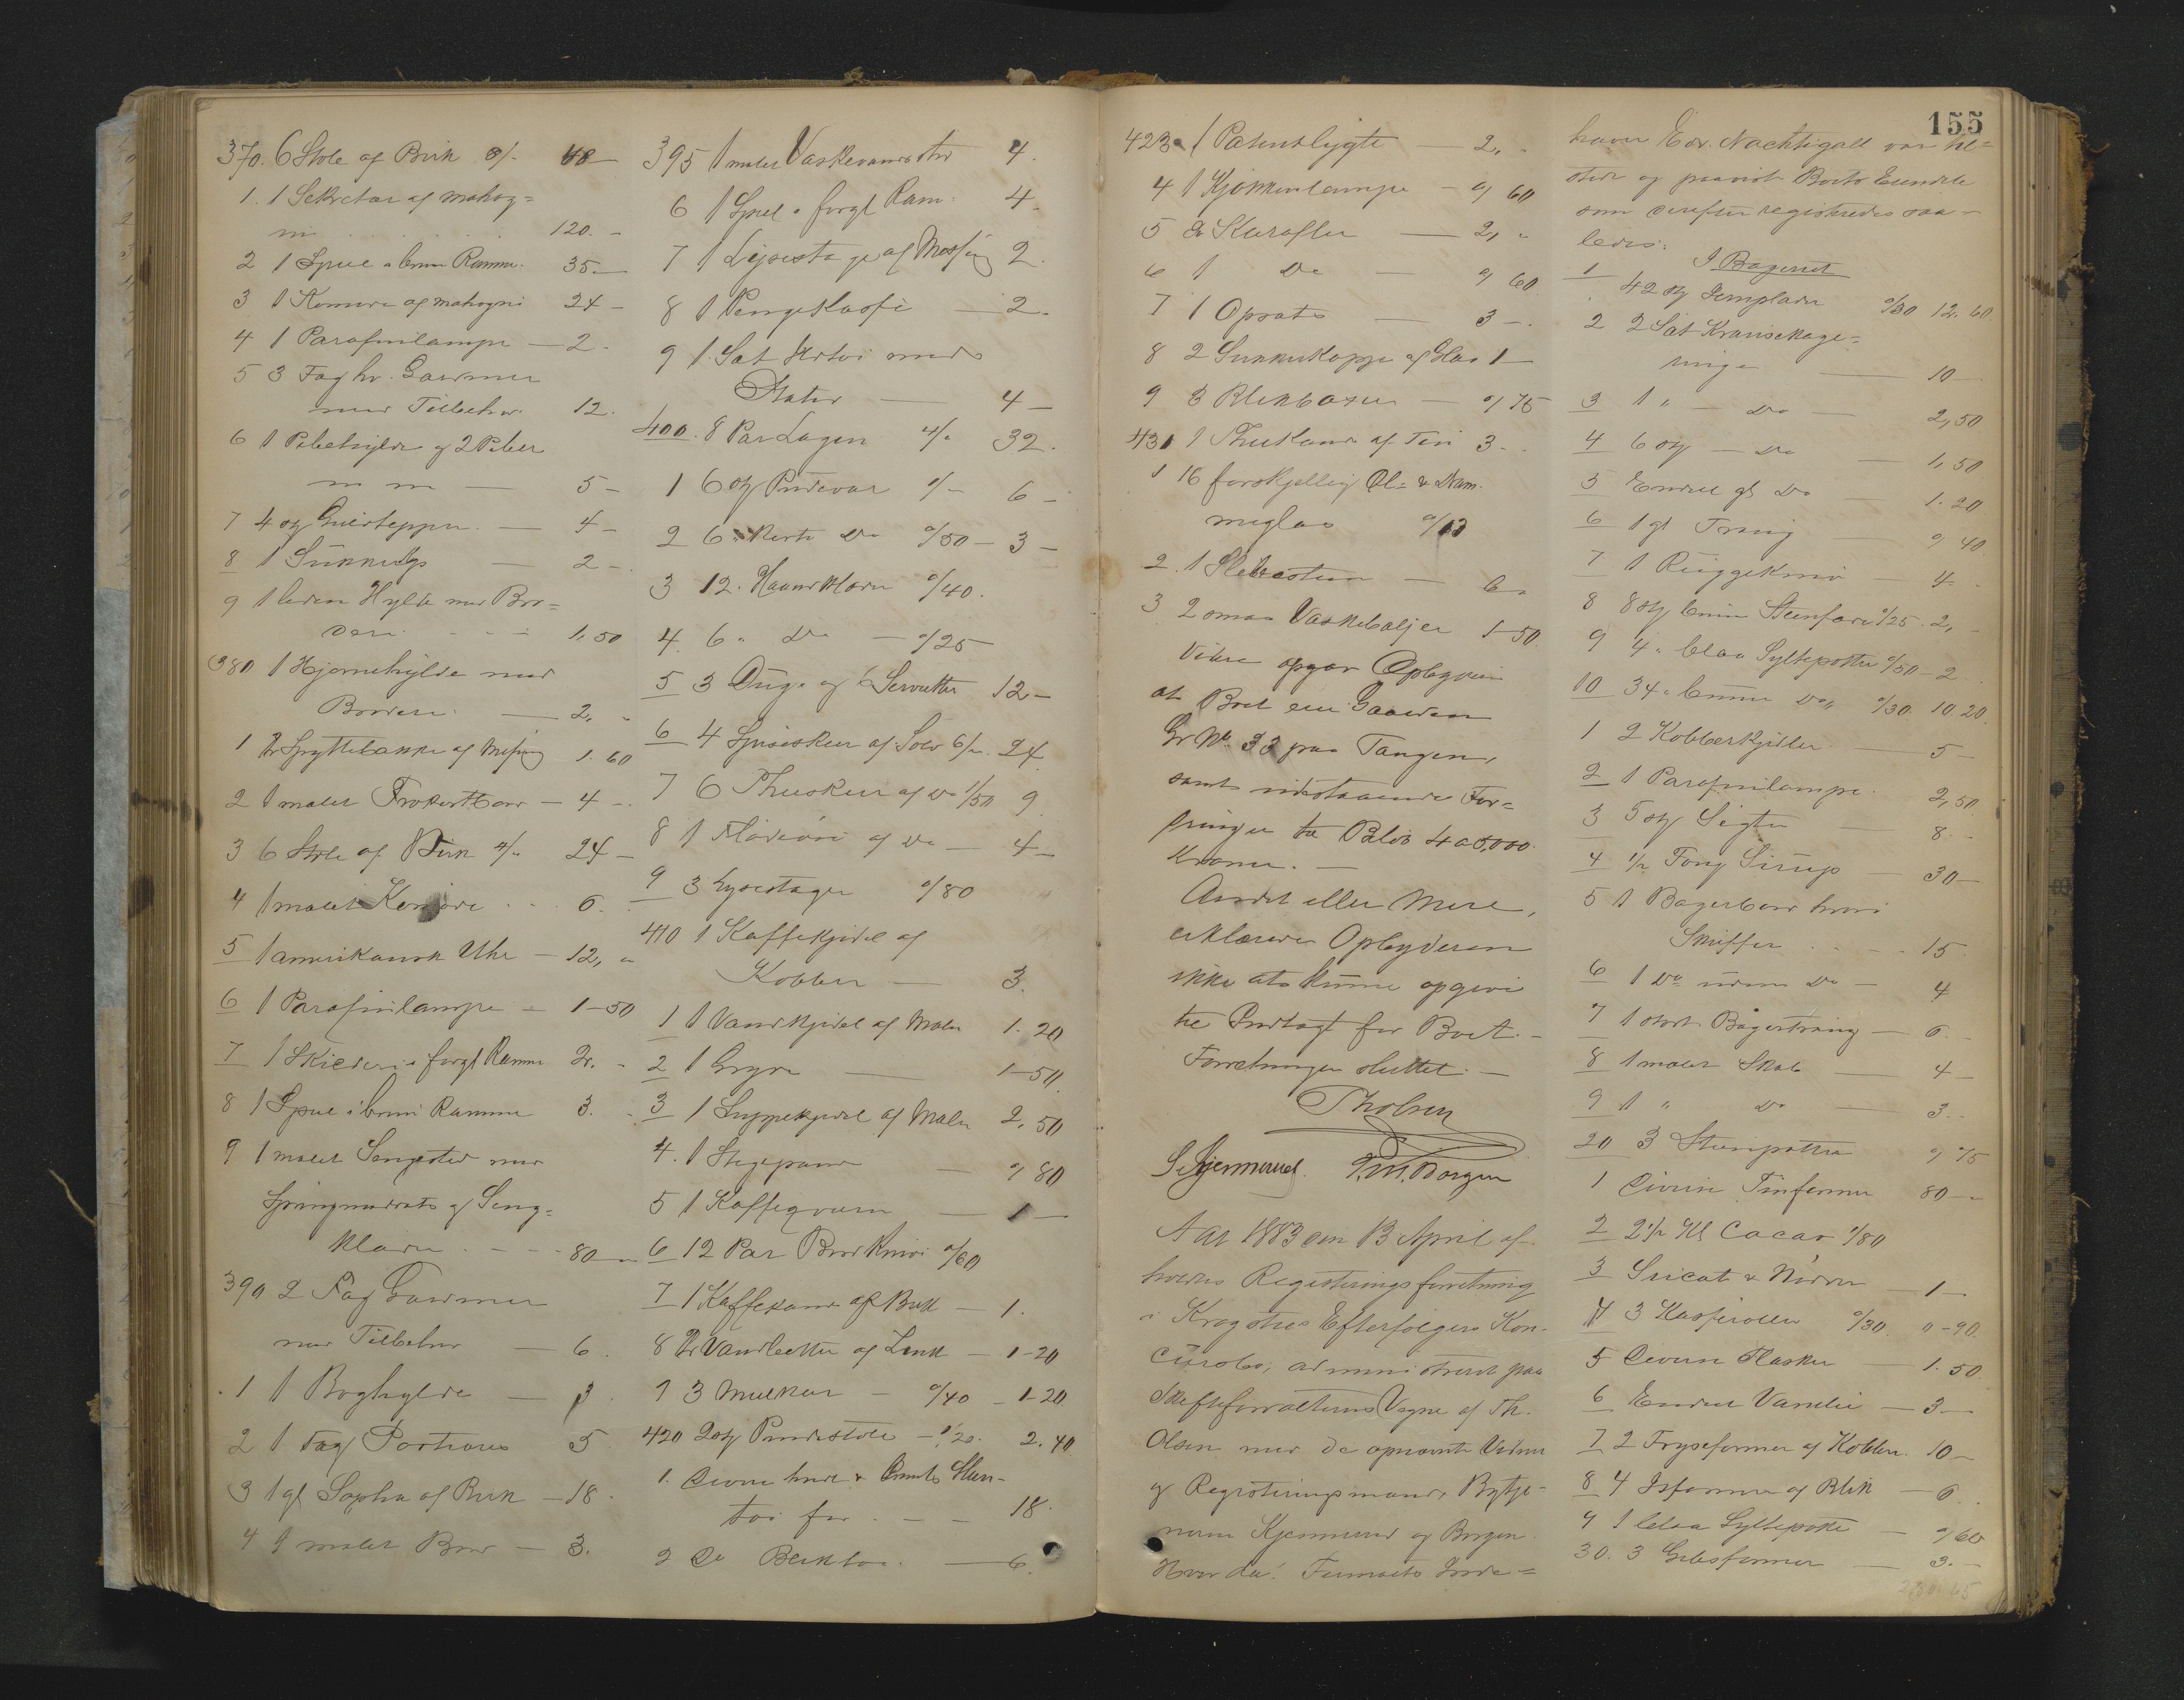 370. 6 Stole af Birk 8/- 48 —
1. 1 Sekretær af mahog=
ni . . . . . 120. -
2 1 Speil i brun Ramme. 35. —
3 1 Komode af mahogni 24 -
4 1 Parafinlampe — 2 -
5 3 Fag hv. Gardiner
med Tilbehør 12.
6 1 Pibehylde og 2 Piber
m m — 5 -
7 4 stk Gulvtepper. — 4 -
8 1 — 2 -
9 1 liden Hylde med Bro=
deri. - - - 1,50
380 1 Hjørnehylde med
Broderi. — 2, "
1 2 Spyttebakker af Messing 1. 60
2 1 malet Frokostbord — 4 -
3 6 Stole af Birk 4/- 24 -
4 1 malet Komode . . . 6.
5 1 amerikansk Uhr — 12, "
6 1 Parafinlampe — 1-50
7 1 Skilderi i forgl Ramme 2. -
8 1 Speil i brun Ramme 3. -
9 1 malet Sengested med
Springmadrats og Seng=
klæder . - - - 80 —
390 2 Fag Gardiner
med Tilbehør — 6.
1 1 Boghylde — 3
2 1 Fag Portierer 5
3 1 gl Sopha af Birk — 18.
4 1 malet Bord — 3.
395 1 malet Vaskevandsstol 4.
6 1 Speil i forgl Ram. 4.
7 1 Lysestage af Messing 2.
8 1 Pengekasse — 2.
9 1 Sæt med
Plater — 4 —
400. 8 Par Lagen 4/- 32.
1 6 stk Pudevar 1/- 6 -
2 6 " korte Do "/50 — 3 -
3 12. Haandklæder "/40.
4. 6 " Do — "/25
5 3 Duge og 6 Servietter 12 -
6 4 Spiseskeer af Sølv 6/- 24
7 6 Theskeer af do 1/50 9
8 1 Flødeøse af do — 4 -
9 3 Lysestager "/80
410 1 Kaffekjedel af
Kobber — 3.
1 1 Vandkjedel af Malm 1. 20
2 1 Gryde — 1-50
3 1 Suppekjedel af Malm 2, 50
4. 1 Stegepande — "/ 80
5 1 Kaffeqværn — 1 —
6 12 Par Bordknive "/60
7 1 Kaffekande af Blik — 1.
8 2 Vandbøtter af Zink — 1-20
9 3 — "/40 — 1-20
420 2 stk Pindestole — 1/20. 2. 40
1. Diverse hvidt & Steen-
tøi for . — — 18.
2 Do Bliktøi. — 6.
423. 1 Patentlygte — 2, -
4 1 Kjøkkenlampe — "/ 60
5 2 Karafler — 2, "
6 1 Do — "/ 60
7 1 Opsats — 3 -.
8 2 Sukkerkopper af Glas 1 —
9 3 Blikbøsser — "/ 75
430 1 Thekande af Tin 3. -
1 16 forskjellig Øl- & Dram-
meglas "/12
2. 1 — 6 "
3 2 smaa Vaskebaljer 1-50.
Videre opgav Opbyderen
at Boet eier Gaarden
Gr No. 33 paa Tangen,
samt udestaaende For=
dringer til Beløb
Kroner. —
Andet eller Mere,
erklærede Opbyderen
ikke at kunne opgive
til Indtægt for Boet. -
Forretningen sluttet. —
Tholsen
S. Kjennerud. Borgen
Aar 1883 den 13 April af-
holdtes Registreringsforretning
i Krogsties Efterfølgers Kon-
cursbo, administreret paa
Skifteforvalterens Vegne af Th.
Olsen med de opnævnte Vidner
og Registreringsmænd, Bytje-
nerne Kjennerud og Borgen.
Hvor da: Firmaets Inde=
155
haver Edv. Nachtigall var til=
stede og paaviste Boets Eiendele
som derefter registreredes saa-
ledes:
I Bageriet
1 42 stk Jernplader "/30 12. 60
2 2 Sæt Kransekage=
ringe — 10 —
3 1 " — Do — 2,50
4 6 stk — Do — 1, 50
5 Endel gl Do — 1. 20
6 1 gl — "/ 40
7 1 — 4 -
8 8 stk brune Steenfade "/25. 2, -
9 4 " blaa Syltepotter "/50 — 2 .
10 34 " brune Do " "/30. 10. 20.
1 2 Kobberkjedler — 5 —
2 1 Parafinlampe. 2, 50
3 5 stk Sigter — 8. -
4 1/2 Sirup — 30 —
5 1 Bagerbord hvori
Skuffer . . . - 15.
6 1 Do uden Do — 4
7 1 stort Bagertraug — 6. -
8 1 malet Skab — 4 —
9 1 " Do — 3. -
20 3 Steenpotter "/ 75
1 Diverse Tinformer 80 —
2 2 1/2 Kl Cacao 1/80
3 Sucat & Nødder — 1 —
4 3 Kasseroller "/30. "-90.
5 Diverse Flasker — 1. 50
6 Endel Vanilie — 3. —
7 2 Fryseformer af Kobber. 10 -
8 4 Isformer af Blik — 6. .
9 1 blaa Syltepotte — "/ 60
30. 3 Gibsformer — 3. —